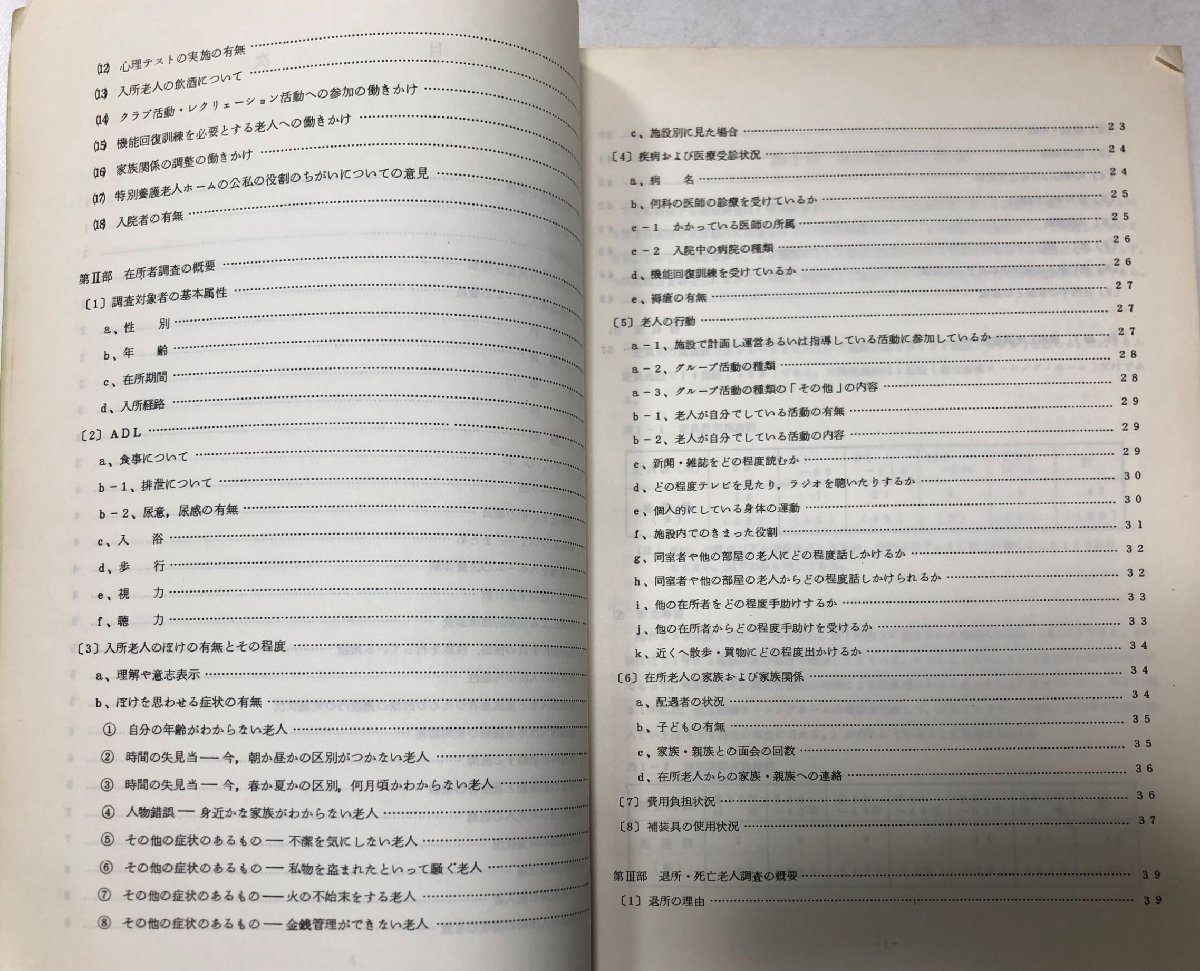 ⑿ 心理テストの実施の有無
⒀ 入所老人の飲酒について
⒁ クラブ活動・レクリェーション活動への参加の働きかけ
⒂ 機能回復訓練を必要とする老人への働きかけ
⒃ 家族関係の調整の働きかけ
⒄ 特別養護老人ホームの公私の役割のちがいについての意見
⒅ 入院者の有無
第Ⅱ部 在所者調査の概要
〔1〕調査対象者の基本属性
a、性 別
b、年 齢
c、在所期間
d、入所経路
〔2〕ADL
a、食事について
b-1、排泄について
b-2、尿意，尿感の有無
c、入 浴
d、歩 行
e、視 力
f、聴 力
〔3〕入所老人のぼけの有無とその程度
a、理解や意志表示
b、ぼけを思わせる症状の有無
① 自分の年齢がわからない老人
② 時間の失見当――今，朝か昼かの区別がつかない老人
③ 時間の失見当――今，春か夏かの区別，何月頃かわからない老人
④ 人物錯誤――身近かな家族がわからない老人
⑤ その他の症状のあるもの――不潔を気にしない老人
⑥ その他の症状のあるもの――私物を盗まれたといって騒ぐ老人
⑦ その他の症状のあるもの――火の不始末をする老人
⑧ その他の症状のあるもの――金銭管理ができない老人
c、施設別に見た場合 23
〔4〕疾病および医療受診状況 24
a、病 名 24
b、何科の医師の診療を受けているか 25
c-1 かかっている医師の所属 25
c-2 入院中の病院の種類 26
d、機能回復訓練を受けているか 26
e、褥瘡の有無 27
〔5〕老人の行動 27
a-1、施設で計画し運営あるいは指導している活動に参加しているか 27
a-2、グループ活動の種類 28
a-3、グループ活動の種類の「その他」の内容 28
b-1、老人が自分でしている活動の有無 29
b-2、老人が自分でしている活動の内容 29
c、新聞・雑誌をどの程度読むか 29
d、どの程度テレビを見たり，ラジオを聴いたりするか 30
e、個人的にしている身体の運動 30
f、施設内でのきまった役割 31
g、同室者や他の部屋の老人にどの程度話しかけるか 32
h、同室者や他の部屋の老人からどの程度話しかけられるか 32
i、他の在所者をどの程度手助けするか 33
j、他の在所者からどの程度手助けを受けるか 33
k、近くへ散歩・買物にどの程度出かけるか 34
〔6〕在所老人の家族および家族関係 34
a、配遇者の状況 34
b、子どもの有無 35
c、家族・親族との面会の回数 35
d、在所老人からの家族・親族への連絡 36
〔7〕費用負担状況 36
〔8〕補装具の使用状況 37
第Ⅲ部 退所・死亡老人調査の概要 39
〔1〕退所の理由 39